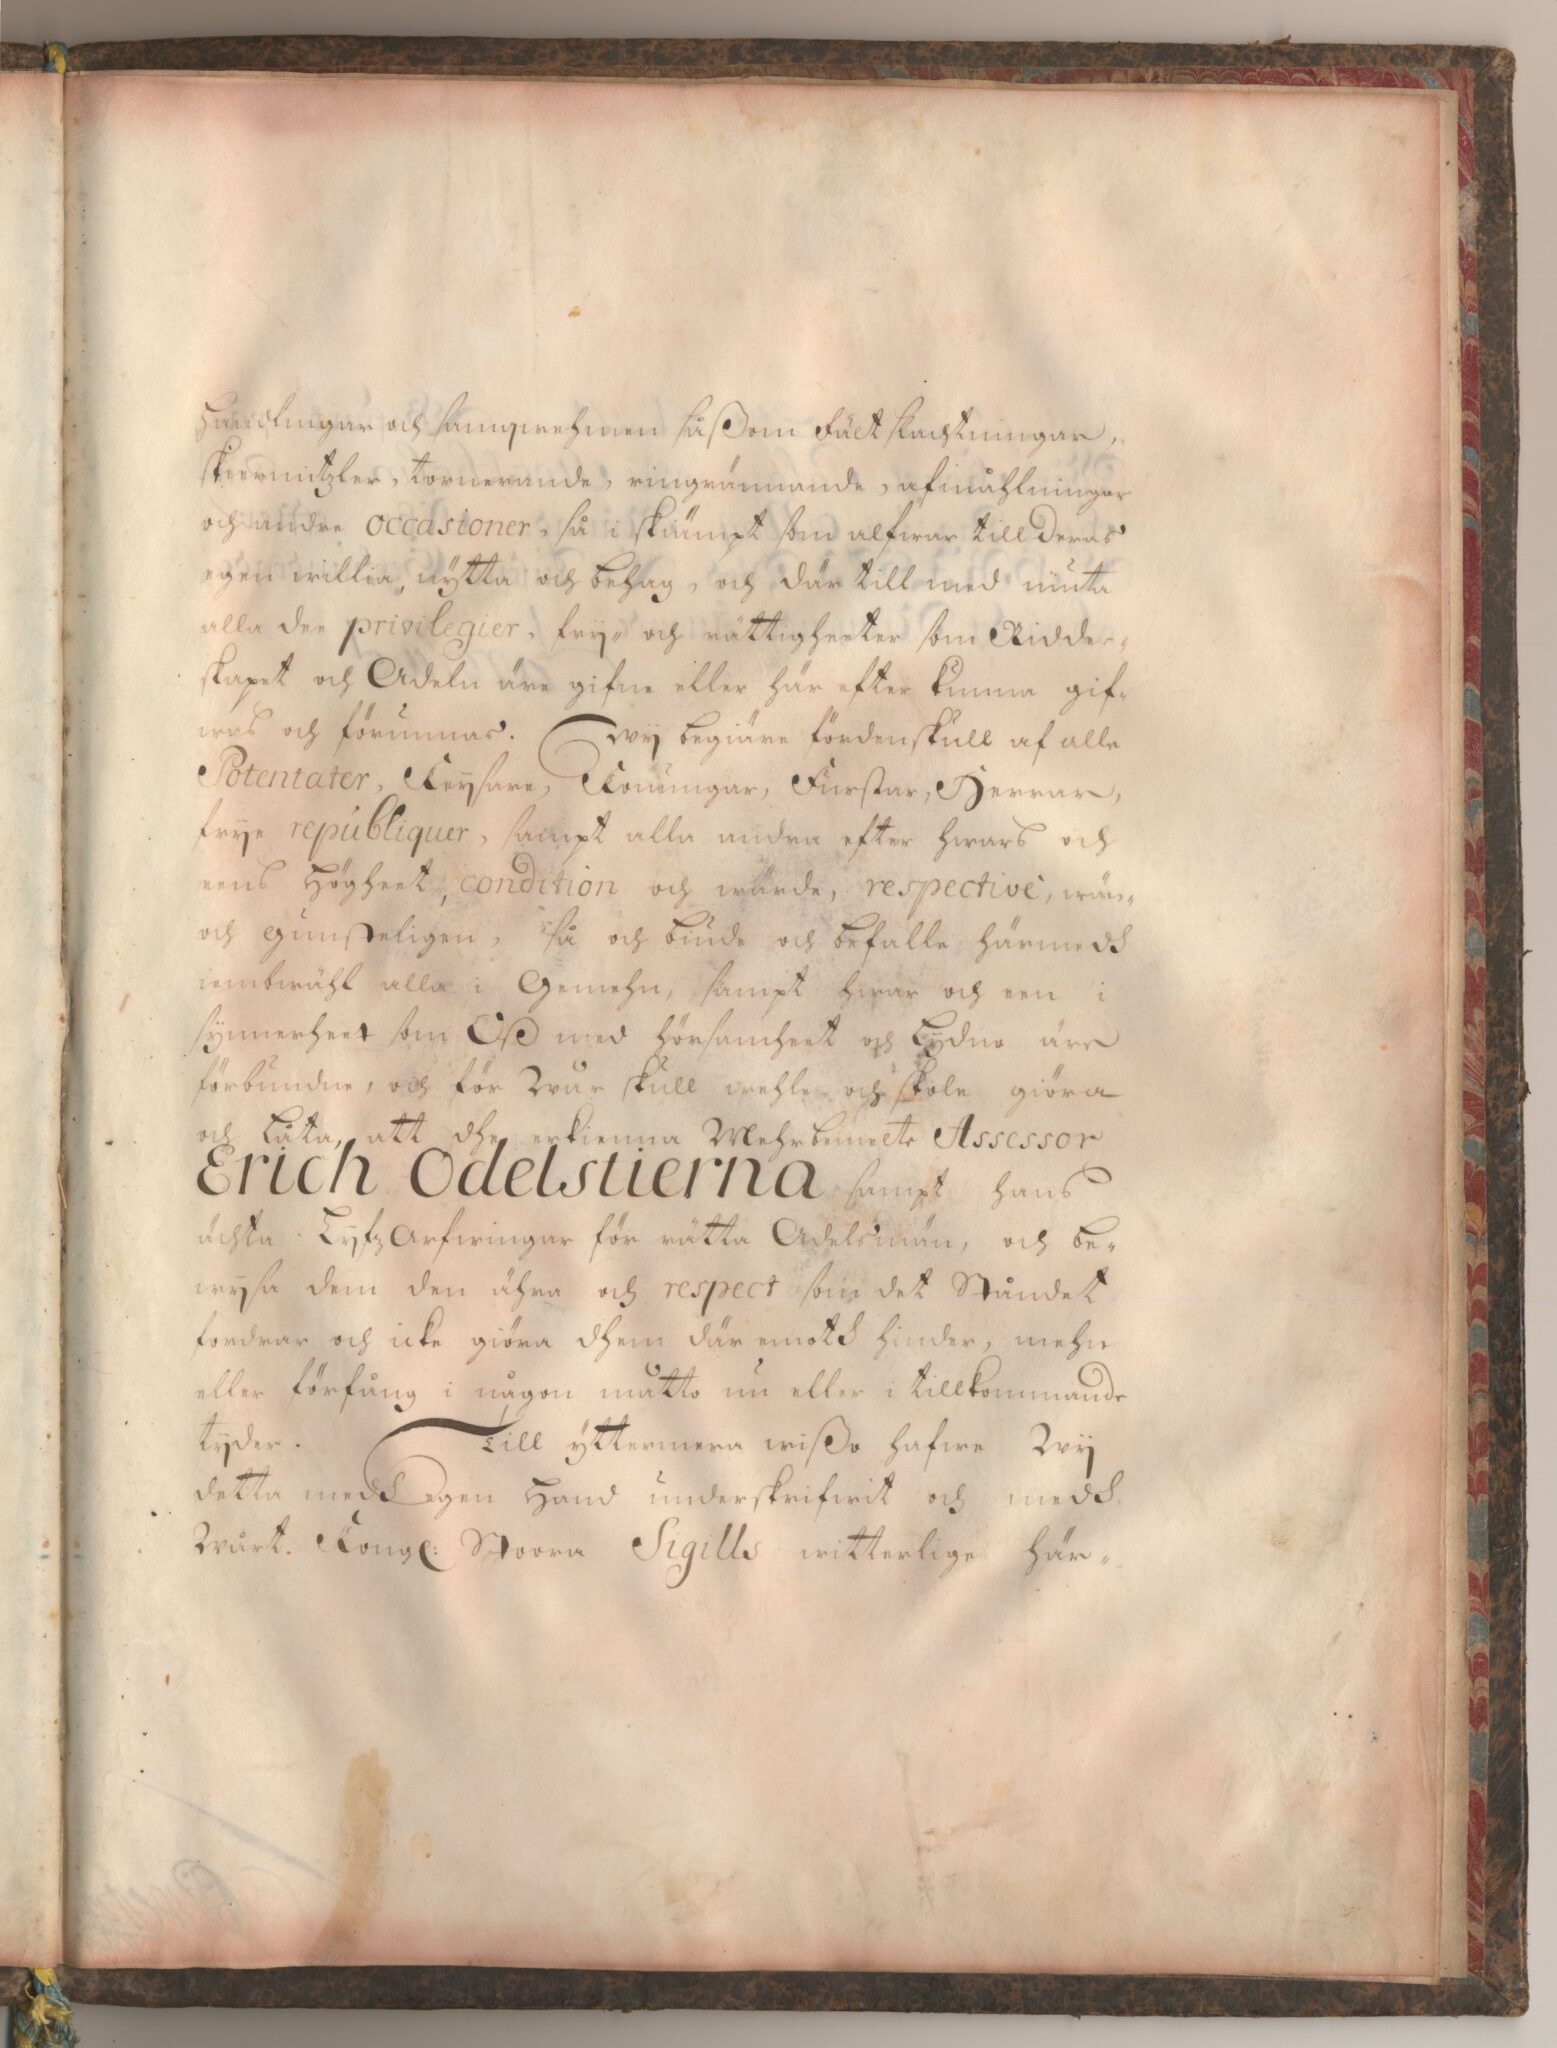 Handlingar och sampqwehmen såßom Fältslachtningar,
skeermitzler, tornerande, ringrännande, afmåhlningar
och andre occasioner, så i skiämpt som alfwar till deras
egen willia, nÿtta och behag, och där till med niuta
alla dee privilegier, frÿ- och rättigheeter som Ridder-
skapet och Adeln äre gifne eller här efter kunna gif-
was och förunnas. Wÿ begiäre fördenskull af alle
Potentater, Keÿsare, Konungar, Furstar, Herrar,
frÿe republiquer, sampt alla andra efter hwars och
eens Högheet, condition och wärde, respective, wän-
och gunsteligen, så och biude och befalle härmedh
iembwähl alla i Gemehn, sampt hwar och een i
sÿnnerheet som Oß med hörsamheet och Lydno äre
förbundne, och för Wår skull wehle och skole giöra
och låta, att dhe erkienna Mehrbemelte Assessor
Erich Odelstierna sampt hans
ächta Lÿfz Arfwingar för rätta Adelsmän, och be-
wÿsa dem den ähra och respect som det Ståndet
fordrar och icke giöra dhem där emoth hinder, mehn
eller förfång i någon måtto nu eller i tillkommande
tÿder. Till ÿttermera wißo hafwe Wÿ
detta medh egen Hand underskrifwit och medh
Wårt Kongl: Stoora Sigills witterlige här-